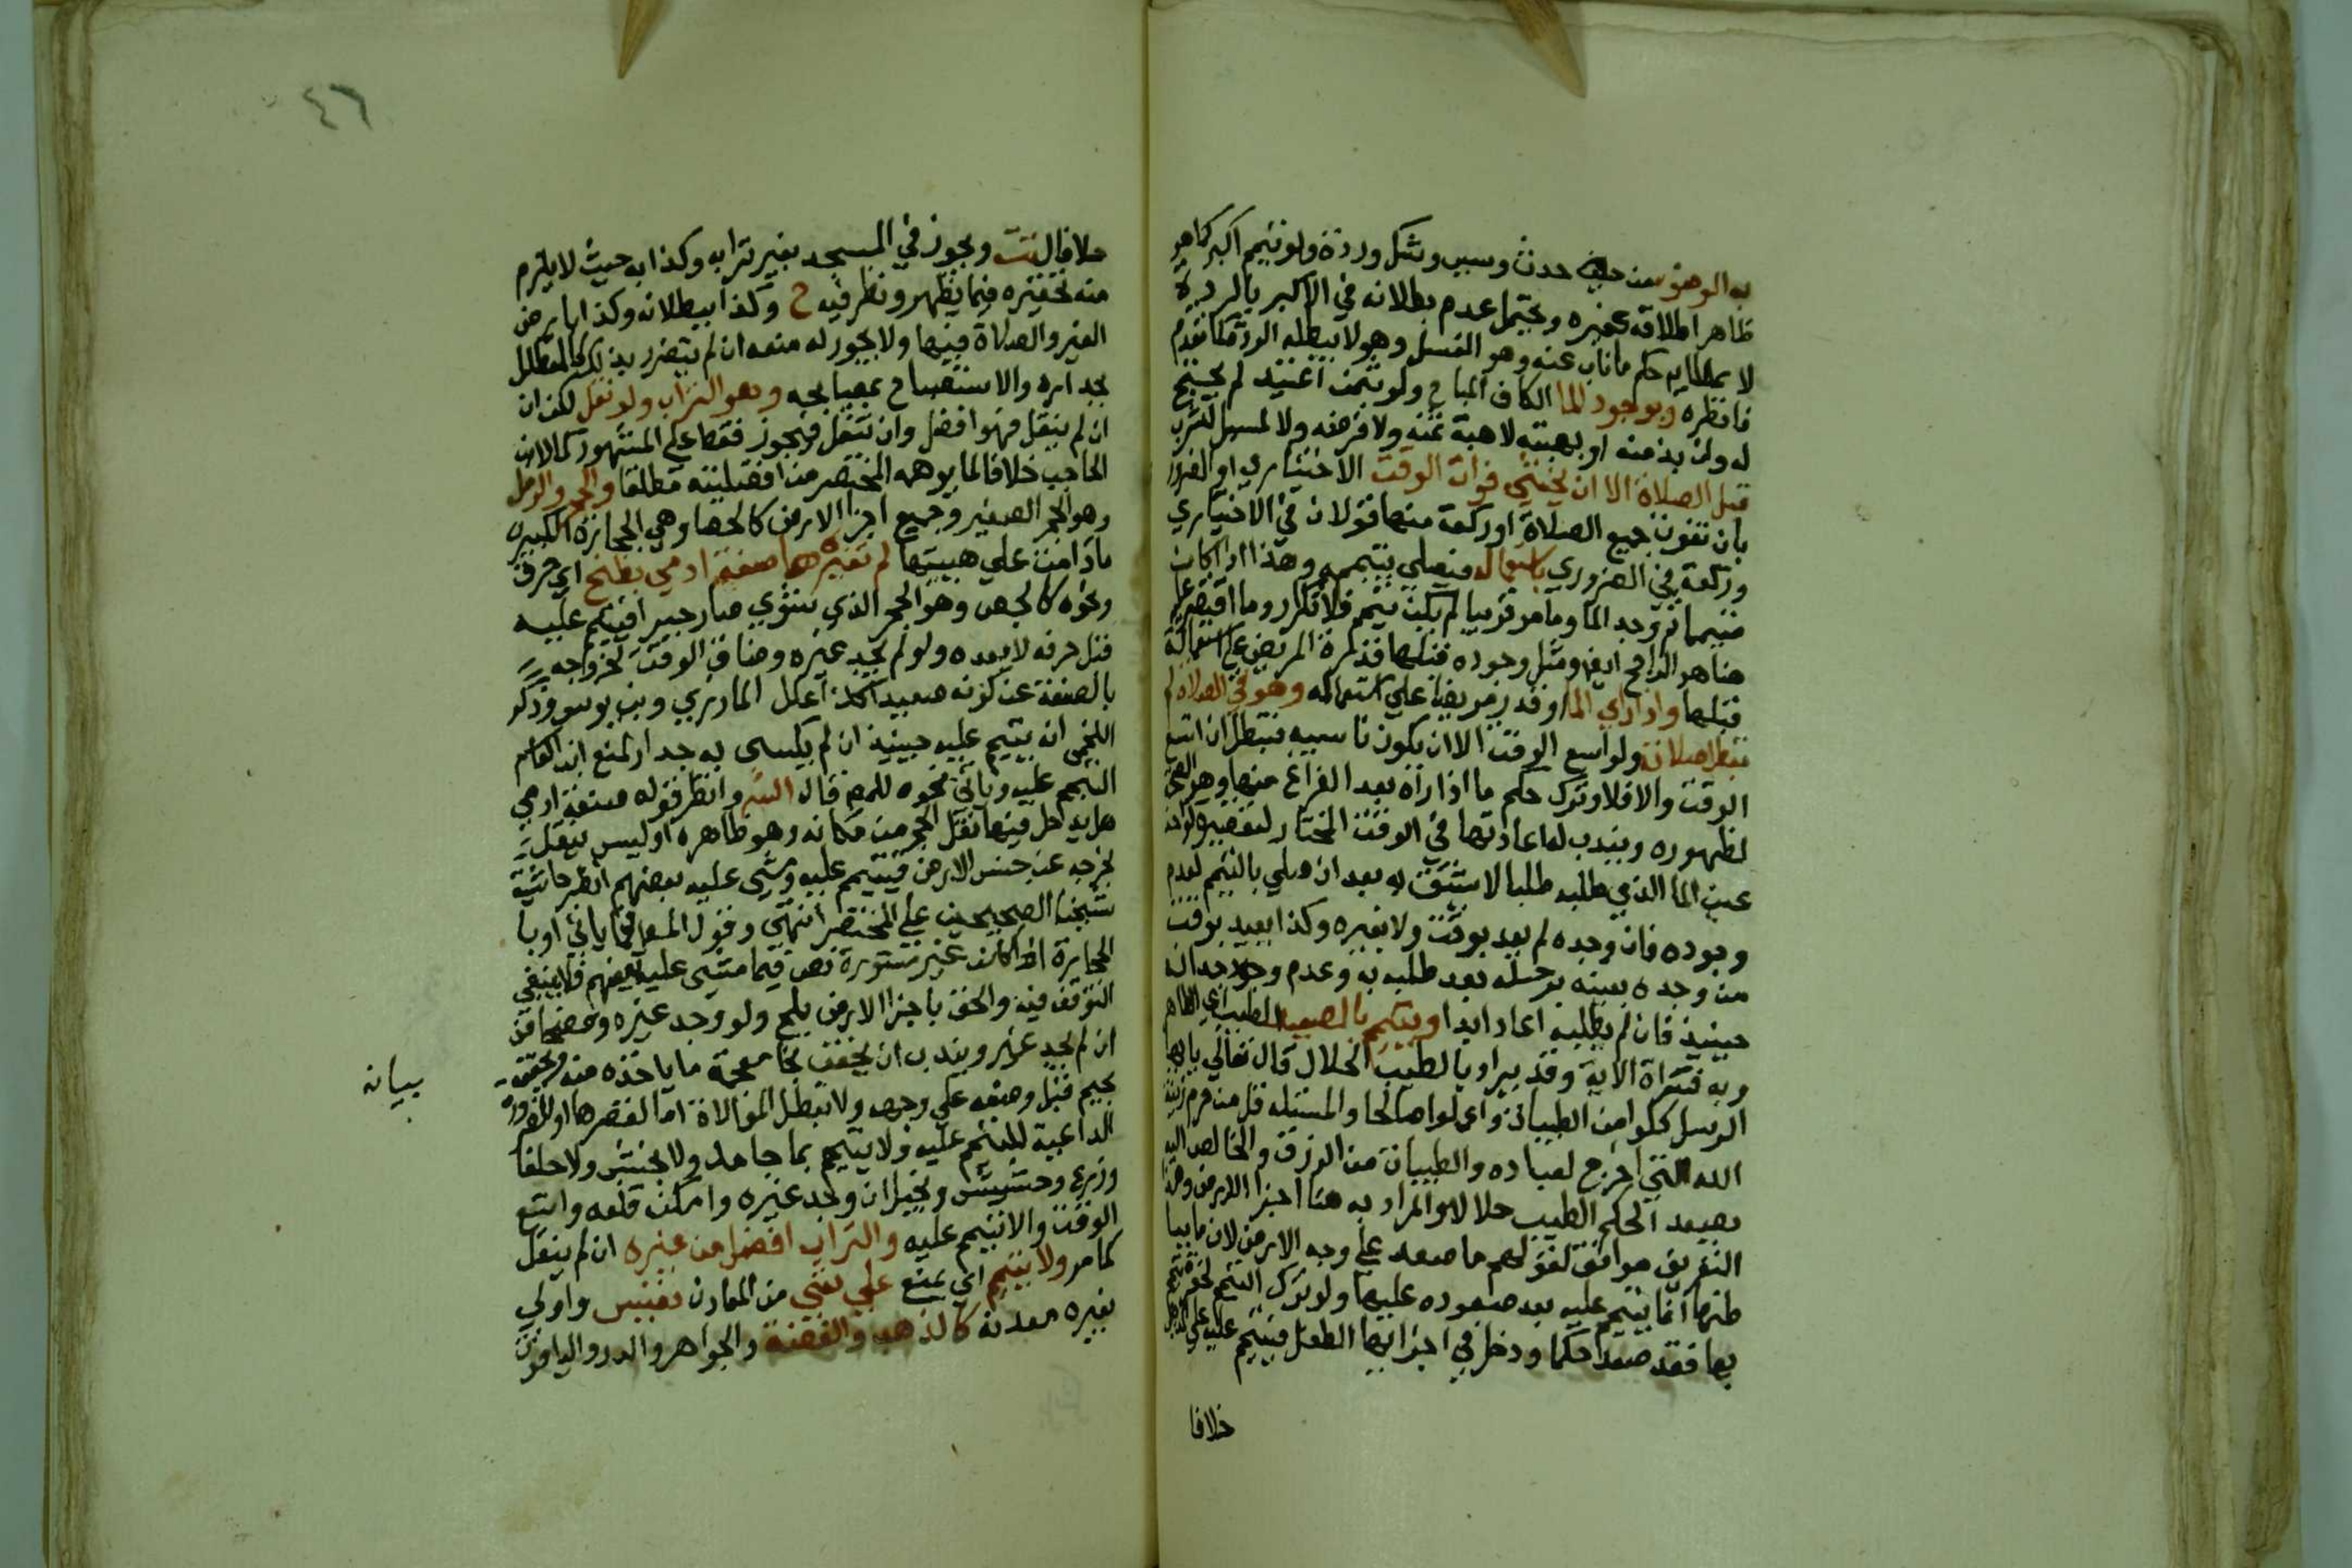 به الوضوء من حدث وسبب وشك وردة ولو تيمم اكبر كما هو
ظاهر اطلاقه كغيره ويحتمل عدم بطلانه في الاكبر بالردة
لا عطايه حكم ما ناب عنه وهو الغسل وهو لا يبطله الردة كما تقدم
فانظره وبوجود الما الكاف المباح ولو بثمن اعتيد لم يحتج
له وان بذمته او بهبته لا هبة ثمنه ولا قرضه ولا لمسهل لقرب
قبل الصلاة الا ان يخشي فوات الوقت الاختياري او الضرو
بان تفوت جميع الصلاة او ركعة منها قولان في الاختياري
وركعة في الضروري باستعماله فيصلي بتيممه وهذا اذا كان
متيمما ثم وجد الما وما مر قريبا لم يكن تيمم فلا تكرار وما اقتصر عليه
هنا هو الراجح ايضا ومثل وجوده قبلها قدرة المريض علي استعماله
قبلها واذا راي الما او قدر مريضا علي استعماله وهو في الصلاة لم
تبطل صلاته ولو اتسع الوقت الا ان يكون ناسيه فتبطل ان اتسع
الوقت والا فلا وترك حكم ما اذا راه بعد الفراغ منها وهو الصحة
لظهوره ويندب له اعادتها في الوقت المختار لتقصيره كواجد
عين الما الذي طلبه طلبا لا يشق به بعد ان صلي بالتيمم لعدم
وجوده فان وجده لم يعد بوقت ولا بغيره وكذا يعيد بوقت
من وجده بعينه برحله بعد طلبه به وعدم وجدانه
حينيذ فان لم يطلبه اعاد ابدا ويتيمم بالصعيد الطيب اي الطاهر
وبه فسرت الاية وقد يراد بالطيب الحلال قال تعالي يا ايها
الرسل كلوا من الطيبات واعملوا صالحا والمستلذ قل من حرم زينة
الله التي اخرج لعباده والطيبات من الرزق والخالص اليه
يصعد الكلم الطيب حلالا والمراد به هنا اجزا الارض وهذا
التعريف موافق لقولهم ما صعد علي وجه الارض لان ما بيا
طنها انما يتيمم عليه بعد صعوده عليها ولو ترك التيمم لنحوه تيمم
بها فقد صعد حكما ودخل في اجزايها الطفل فيتيمم عليه علي
خلافا
٤٦
خلافا لتت ويجوز في المسجد بغير ترابه وكذا به حيث لا يلزم
منه تحفيره فيما يظهر ونظر فيه ح وكذا ببطلانه وكذا بارض
الغير والصلاة فيها ولا يجوز له منعه ان لم يتضرر بذلك كالمظلل
بجداره والاستصباح بمصباحه وهو التراب ولو نقل لكن ان
ان لم ينقل فهو افضل وان نقل فيجوز فقط علي المشهور كما لابن
الحاجب خلافا لما يوهمه المختصر من افضليته مطلقا والحجر والرمل
وهو الحجر الصغير وجميع اجزا الارض كالحصا وهي الحجارة الكبيرة
ما دامت علي هييتها لم تغيرها صنعة ادمي بطبخ اي حرق
ونحوه كالجص وهو الحجر الذي يشوي صار جيرا فيتيمم عليه
قبل حرقه لا بعده ولو لم يجد غيره وضاق الوقت لخروجه
بالصنعة عن كونه صعيدا كذا علل المازري وبن يونس وذكر
اللخمي انه يتيمم عليه حينيذ ان لم يكسي به جدار لمنع ابن القاسم
التيمم عليه وياتي نحوه للمص قال الش وانظر قوله صنعة ادمي
هل يدخل فيها نقل الحجر من مكانه وهو ظاهره او ليس بنقل
يخرجه عن جنس الارض فيتيمم عليه ومشي عليه بعضهم انظر حاشية
شيخنا الصحيحين علي المختصر انتهي وقول المص فيما ياتي او با
لحجارة اذا كانت غير مستورة نص فيما مشي عليه بعضهم فلا ينبغي
التوقف فيه والحق باجزا الارض بلح ولو وجد غيره وخضخاض
ان لم يجد غيره ويندب ان يخفف بخا معجمة ما ياخذه منه ويجفف
بجيم قبل وضعه علي وجهه ولا تبطل الموالاة اما لقصرها او للضرورة
الداعية للتيمم عليه ولا يتيمم بما جامد ولا بخشب ولا حلفا
وزرع وحشيش ونجيل ان وجد غيره وامكن قلعه واتسع
الوقت والا تيمم عليه والتراب افضل من غيره ان لم ينقل
كما مر ولا يتيمم اي يمنع علي شي من المعادن نفيس واولي
بغيره معدنه كالذهب والفضة والجواهر والدر والياقوت
بيانه